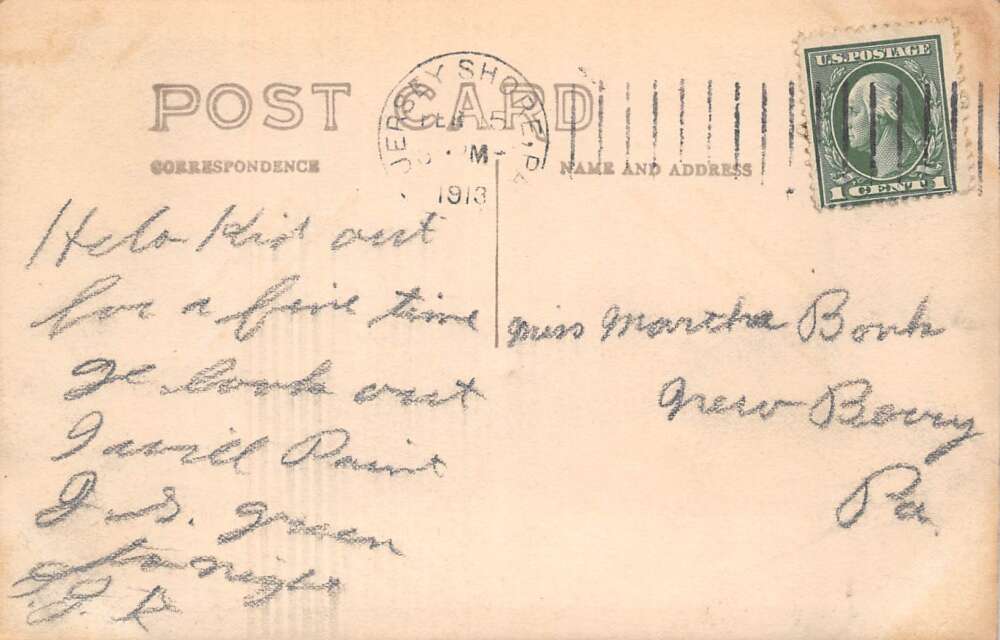 POST CARD
CORRESPONDENCE
NAME AND ADDRESS
JERSEY SHORE, PA
FEB 5
PM
1913
U.S. POSTAGE
1 CENT 1
Helo Kid out
for a fine time
look out
I will Paint
J. S. green
to night
Miss Martha Bonk
New Berry
Pa